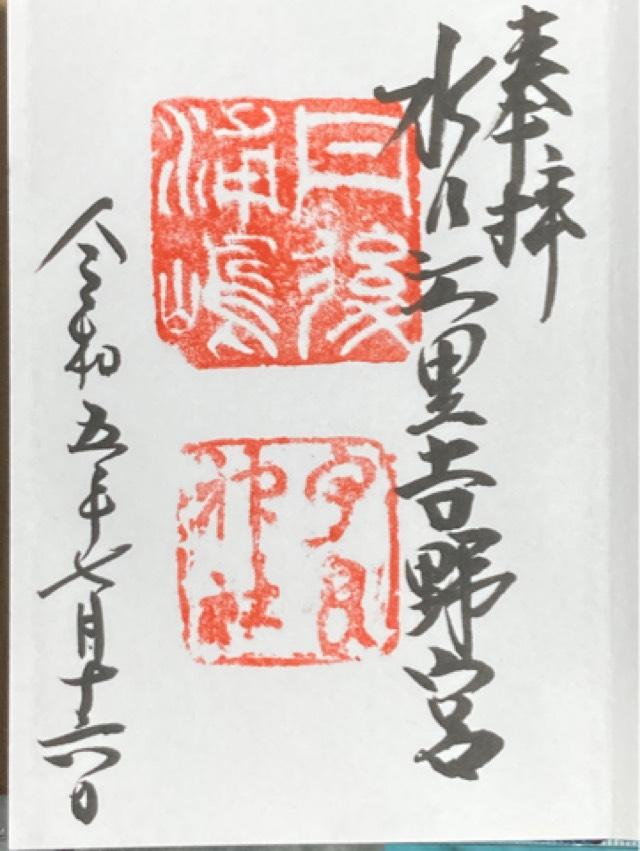 奉拝
水江里吉野宮
丹後
浦嶋
宇良
神社
令和五年七月十六日